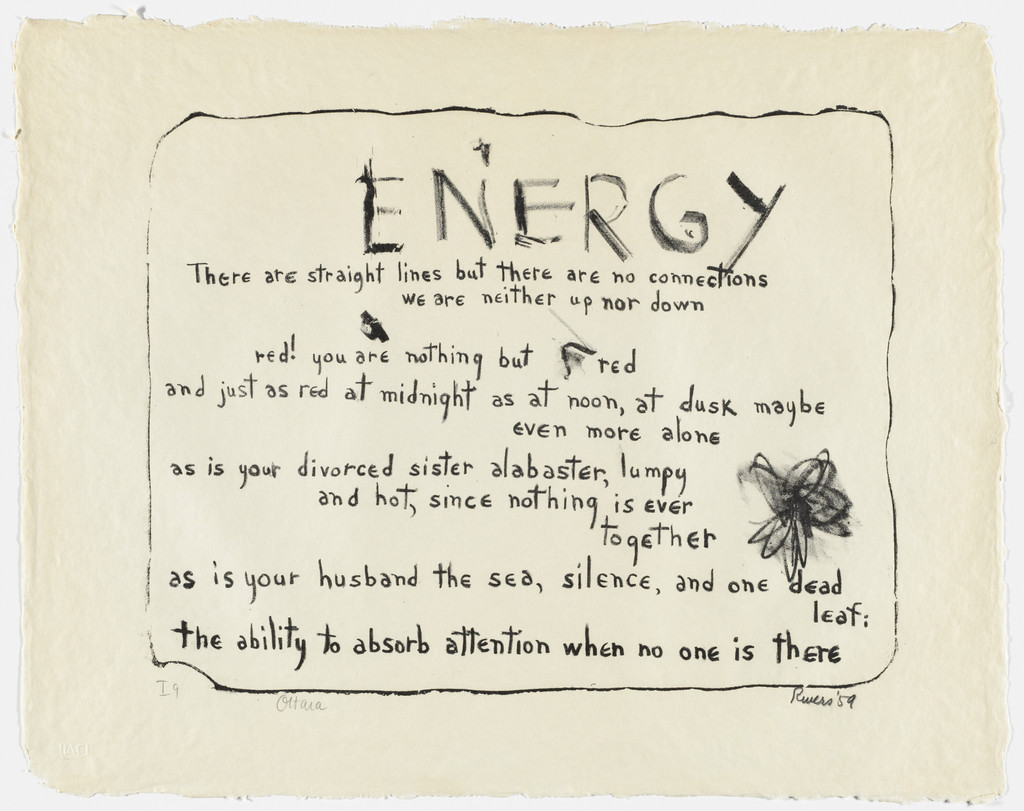 ENERGY
There are straight lines but there are no connections
we are neither up nor down
red! you are nothing but red
and just as red at midnight as at noon, at dusk maybe
even more alone
as is your divorced sister alabaster, lumpy
and hot, since nothing is ever
together
as is your husband the sea, silence, and one dead
leaf:
the ability to absorb attention when no one is there
I 9
OHara
Rivers '59